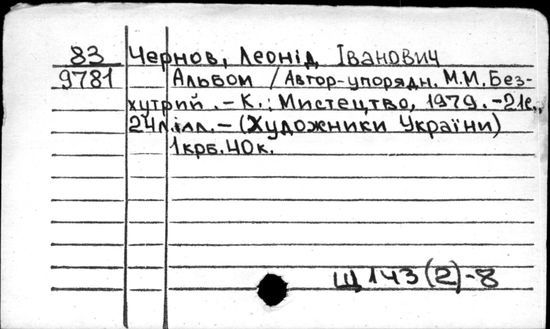 83 Чернов, Леонід Іванович
9781 Альбом / Автор-упорядн. М.М. Без-
хутрий. – К.: Мистецтво, 1979. – 21с.,
24л.ілл. – (Художники України)
1крб. 40к.
Щ143(2)-8